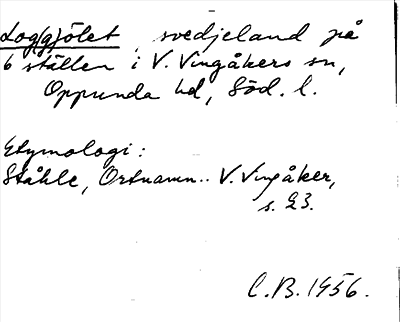 Log(g)jölet, svedjeland på
6 ställen i V. Vingåkers sn,
Oppunda hd, Söd. l.
Etymologi:
Ståhle, Ortnamn.. V. Vingåker,
s. 23.
C.B. 1956.